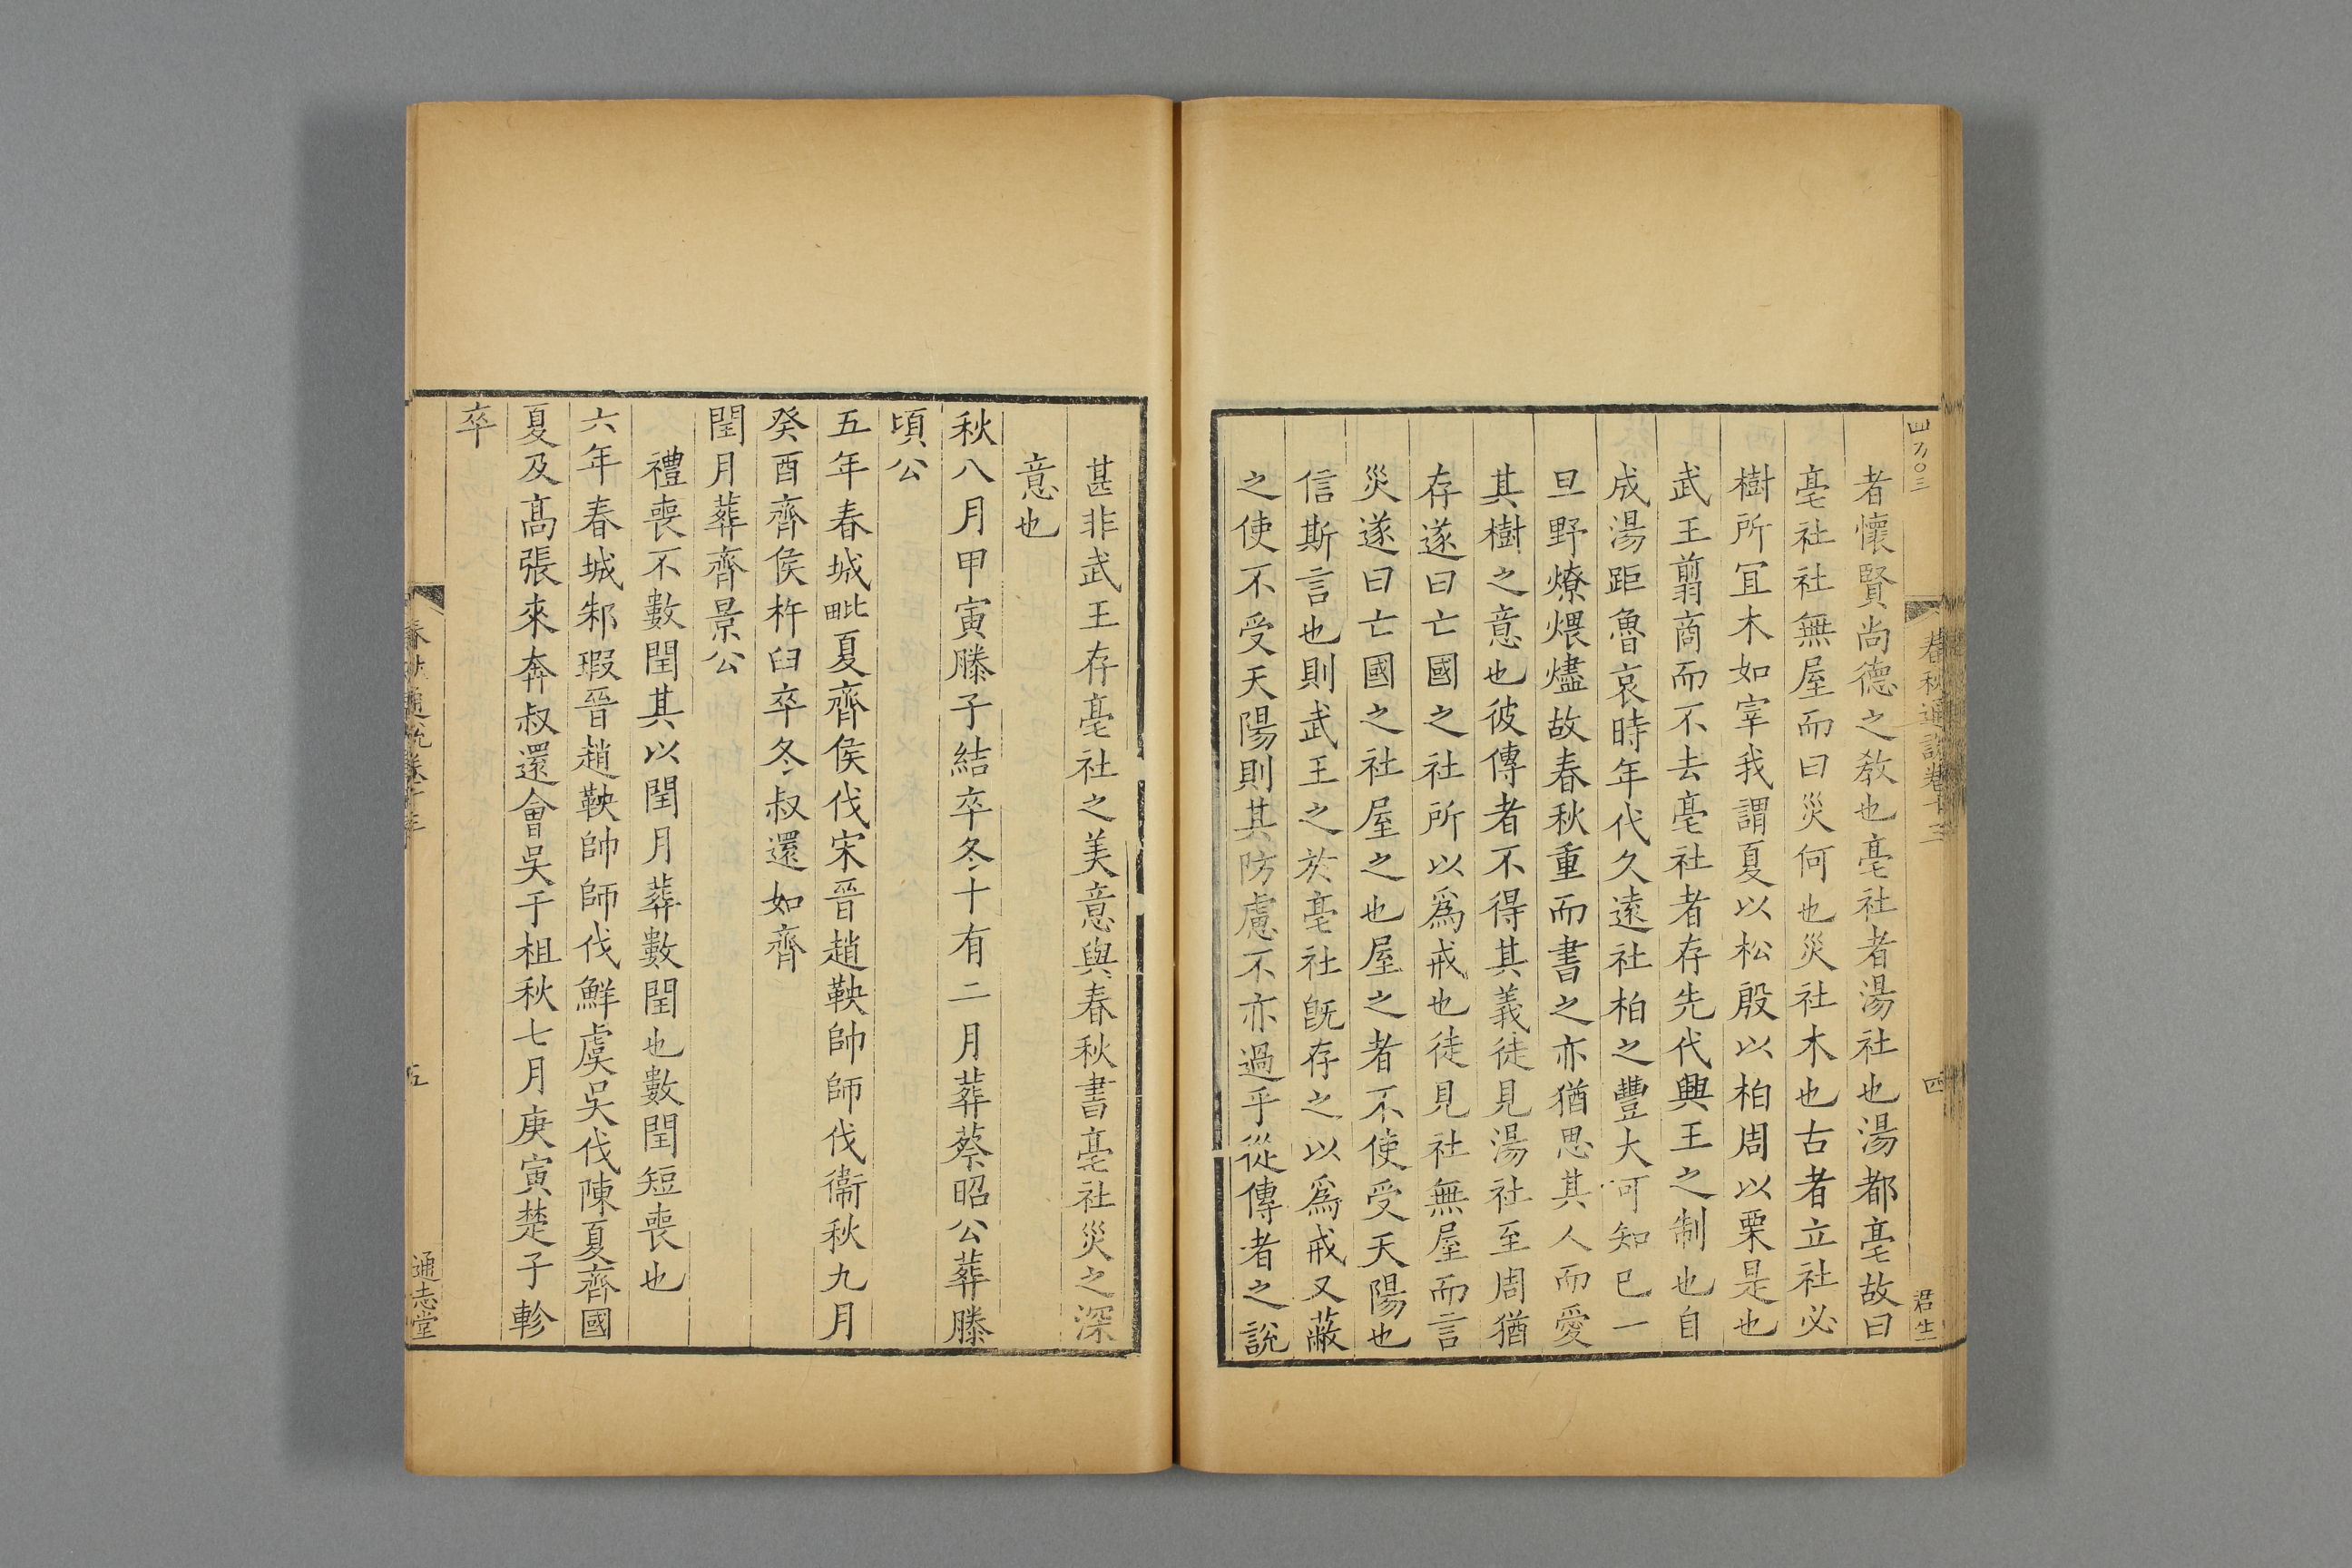 春秋通說卷十三
四
君生
者懷賢尚德之敎也亳社者湯社也湯都亳故曰
亳社社無屋而曰災何也災社木也古者立社必
樹所宜木如宰我謂夏以松殷以柏周以栗是也
武王翦商而不去亳社者存先代興王之制也自
成湯距魯哀時年代久遠社柏之豐大可知已一
旦野燎煨燼故春秋重而書之亦猶思其人而愛
其樹之意也彼傳者不得其義徒見湯社至周猶
存遂曰亡國之社所以爲戒也徒見社無屋而言
災遂曰亡國之社屋之也屋之者不使受天陽也
信斯言也則武王之於亳社旣存之以爲戒又蔽
之使不受天陽則其防慮不亦過乎從傳者之說
甚非武王存亳社之美意與春秋書亳社災之深
意也
秋八月甲寅滕子結卒冬十有二月葬蔡昭公葬滕
頃公
五年春城毗夏齊侯伐宋晉趙鞅帥師伐衞秋九月
癸酉齊侯杵臼卒冬叔還如齊
閏月葬齊景公
禮喪不數閏其以閏月葬數閏也數閏短喪也
六年春城邾瑕晉趙鞅帥師伐鮮虞吳伐陳夏齊國
夏及髙張來奔叔還會吳于柤秋七月庚寅楚子軫
卒
春秋通說卷十三
五
通志堂